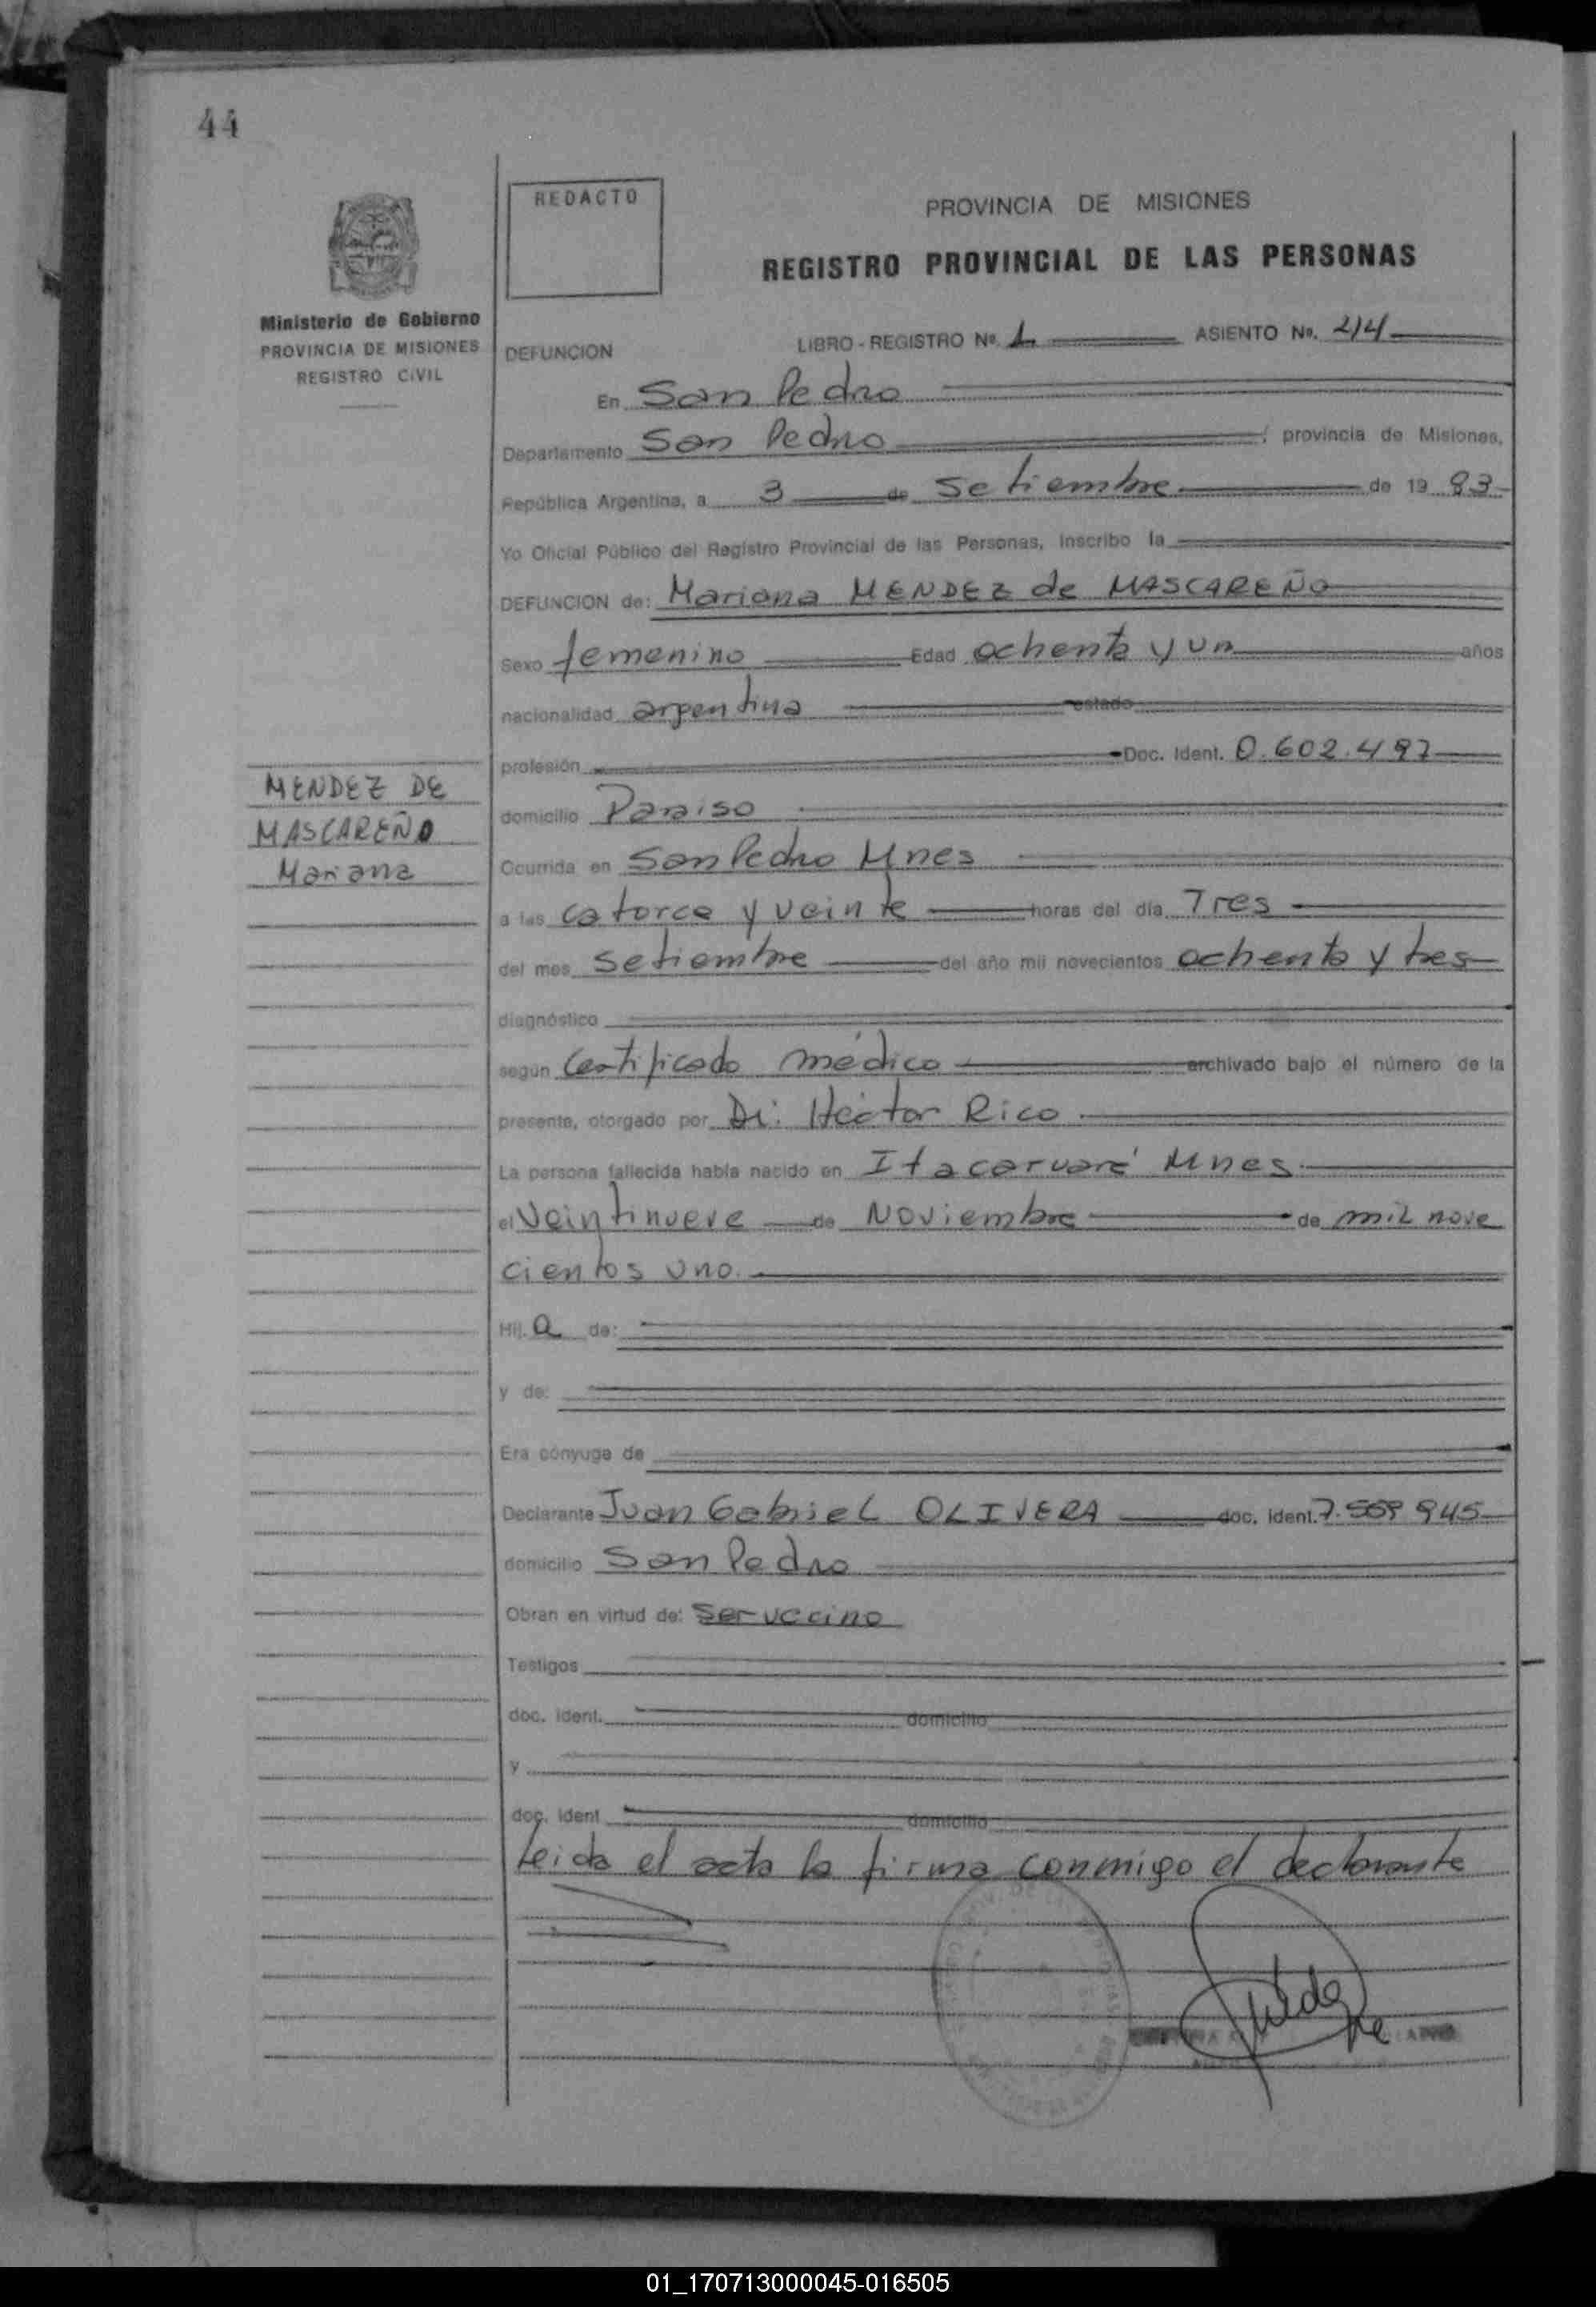 44
REDACTO
PROVINCIA DE MISIONES
REGISTRO PROVINCIAL DE LAS PERSONAS
Ministerio de Gobierno
PROVINCIA DE MISIONES
REGISTRO CIVIL
DEFUNCION
LIBRO - REGISTRO Nº. 1 ASIENTO Nº.
En San Pedro
Departamento San Pedro, provincia de Misiones,
República Argentina, a 3 de Setiembre de 19 83
Yo Oficial Público del Registro Provincial de las Personas, inscribo la
DEFUNCION de: Mariana MENDEZ de MASCAREÑO
Sexo femenino Edad ochenta y un años
nacionalidad argentina estado
profesión Doc. Ident. 0.602.497
MENDEZ DE
MASCAREÑO
Mariana
domicilio Paraiso
Ocurrida en San Pedro Mnes
a las catorce y veinte horas del día Tres
del mes setiembre del año mil novecientos ochenta y tres
diagnóstico
según Certificado médico archivado bajo el número de la
presente, otorgado por Dr. Héctor Rico
La persona fallecida había nacido en Itacaruaré Mnes
el Veintinueve de Noviembre de mil nove
cientos uno.
Hij. a de:
y de:
Era cónyuge de
Declarante Juan Gabriel OLIVERA doc. ident. 7.559 945
domicilio San Pedro
Obran en virtud de: ser vecino
Testigos
doc. ident. domicilio
y
doc. ident. domicilio
Leida el acta la firma conmigo el declarante
01_170713000045-016505